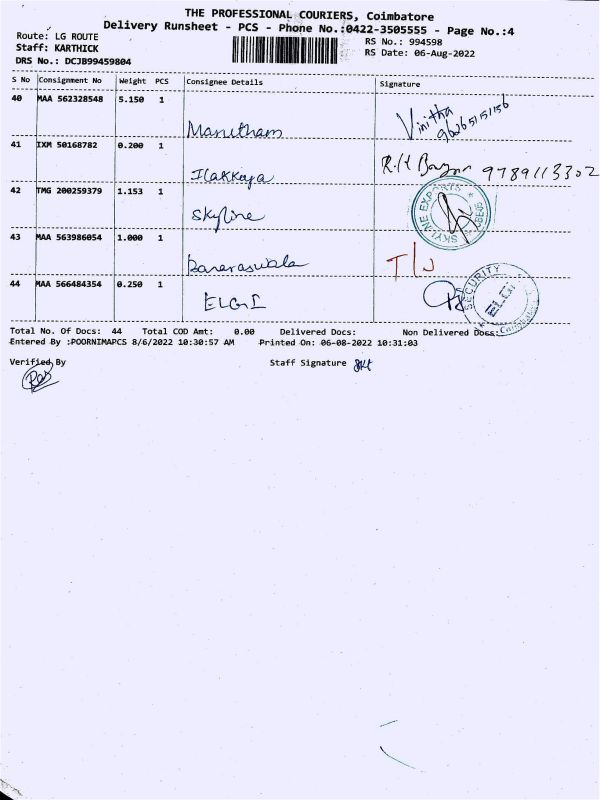 THE PROFESSIONAL COURIERS, Coimbatore
Delivery Runsheet - PCS - Phone No.:0422-3505555 - Page No.:4
Route: LG ROUTE
RS No.: 994598
Staff: KARTHICK
RS Date: 06-Aug-2022
DRS No.: DCJB99459804
S No Consignment No Weight PCS Consignee Details Signature
40 MAA 562328548 5.150 1
Manitham Vinitha 9626515156
41 IXM 50168782 0.200 1
Ilakkaya 9789113302
42 TMG 200259379 1.153 1
Skyline SKYLINE EXPORTS
43 MAA 563986054 1.000 1
Banaraswala
44 MAA 566484354 0.250 1
ELGI SECURITY ELGI
Total No. Of Docs: 44 Total COD Amt: 0.00 Delivered Docs: Non Delivered Docs:
Entered By :POORNIMAPCS 8/6/2022 10:30:57 AM Printed On: 06-08-2022 10:31:03
Verified By Staff Signature